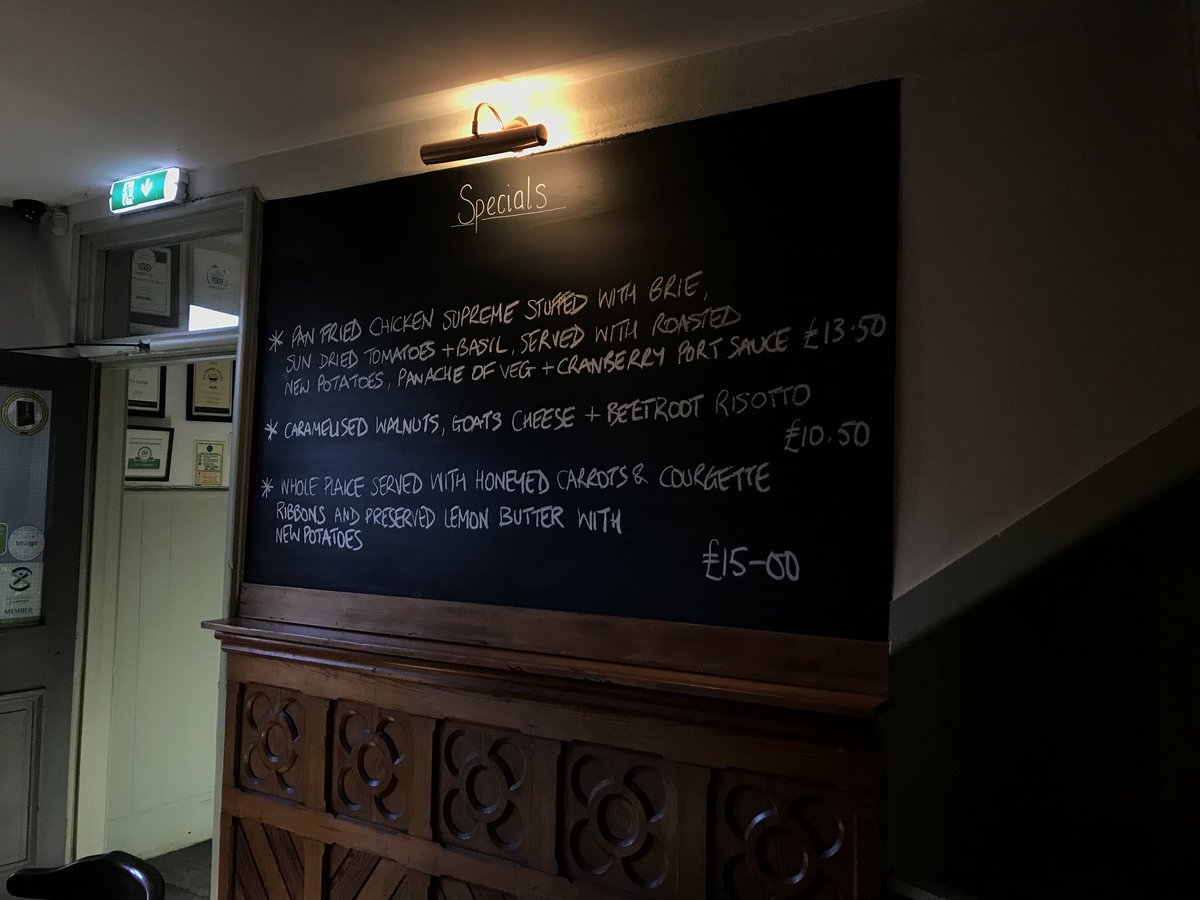 Specials
* PAN FRIED CHICKEN SUPREME STUFFED WITH BRIE,
SUN DRIED TOMATOES + BASIL, SERVED WITH ROASTED
NEW POTATOES, PANACHE OF VEG + CRANBERRY PORT SAUCE £13.50
* CARAMELISED WALNUTS, GOATS CHEESE + BEETROOT RISOTTO
£10.50
* WHOLE PLAICE SERVED WITH HONEYED CARROTS & COURGETTE
RIBBONS AND PRESERVED LEMON BUTTER WITH
NEW POTATOES
£15-00
trivago
MEMBER